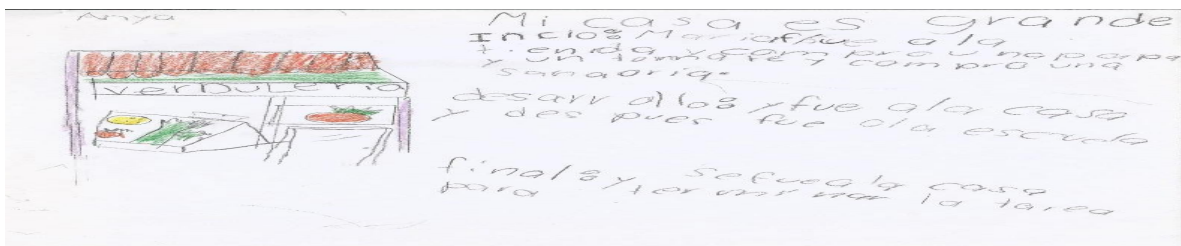 Anya
verDuleria
Mi casa es grande
Inclo8 Maria fue a la
tienda y compro una papa
y un tomate y compro una
sanaoria.
desarrollo8 y fue ala casa
y des pues fue ala escuela
final8 y se fue a la casa
para terminar la tarea